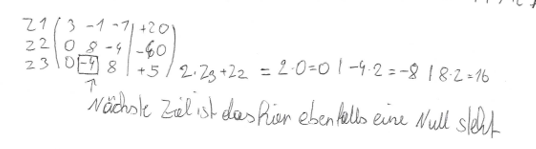 Z1 ( 3 -1 -1 | +20 )
Z2 ( 0 8 -4 | -60 )
Z3 ( 0 -4 8 | +5 ) 2·Z3+Z2 = 2·0=0 | -4·2=-8 | 8·2=16
Nächste Ziel ist das hier ebenfalls eine Null steht